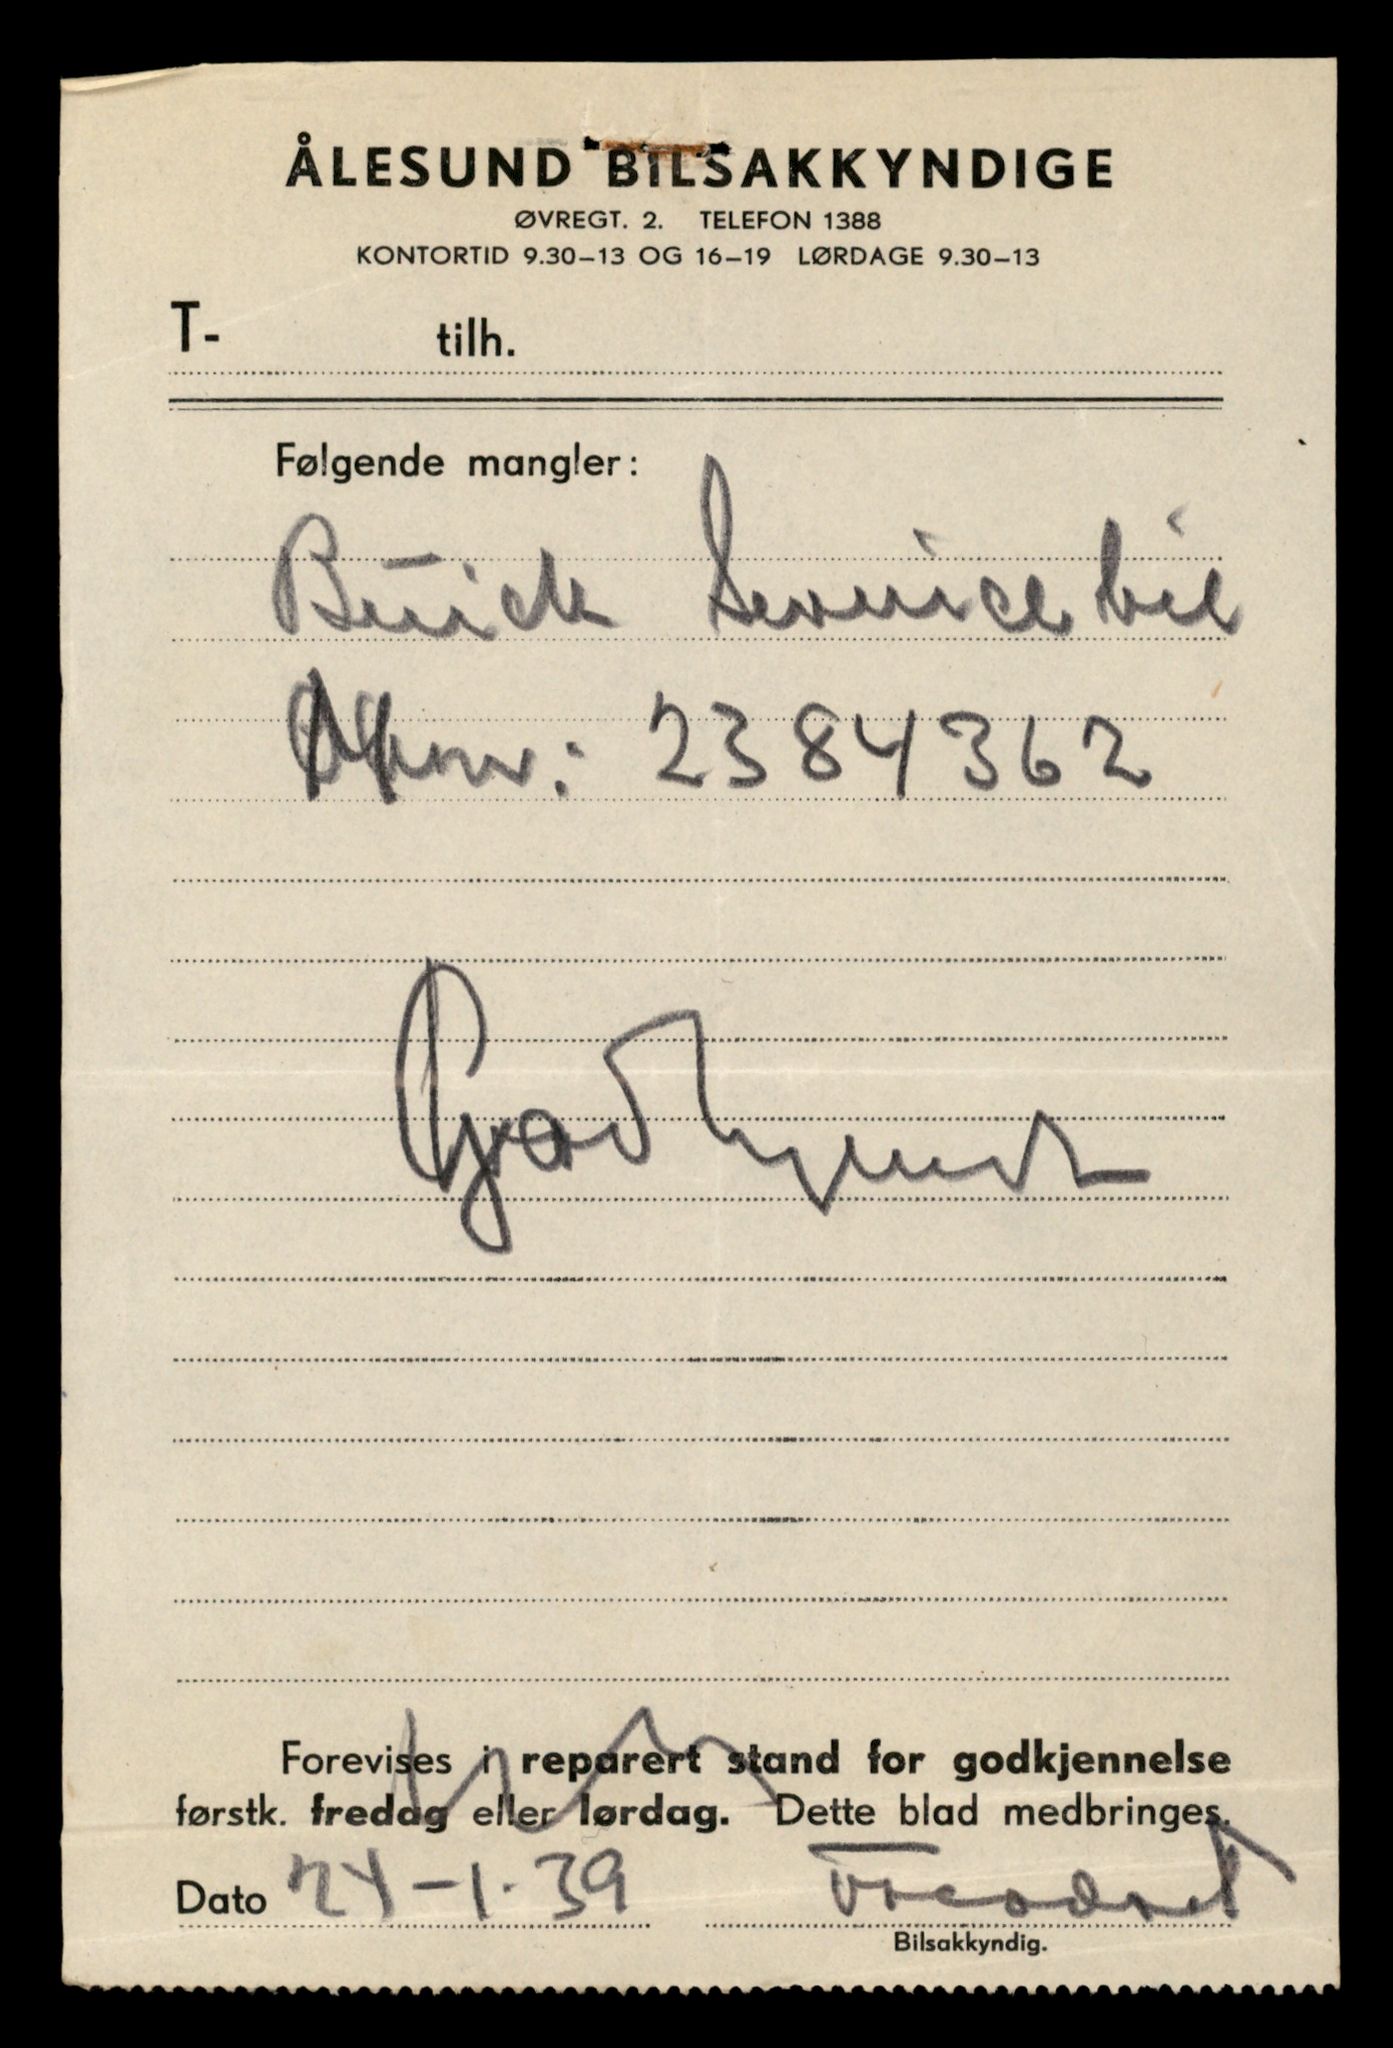 ÅLESUND BILSAKKYNDIGE
ØVREGT. 2. TELEFON 1388
KONTORTID 9.30–13 OG 16–19 LØRDAGE 9.30–13
T- tilh.
Følgende mangler:
Buick Servicebil
2384362
Godkjendt
Forevises i reparert stand for godkjennelse
førstk. fredag eller lørdag. Dette blad medbringes.
Dato 24-1-39
Bilsakkyndig.